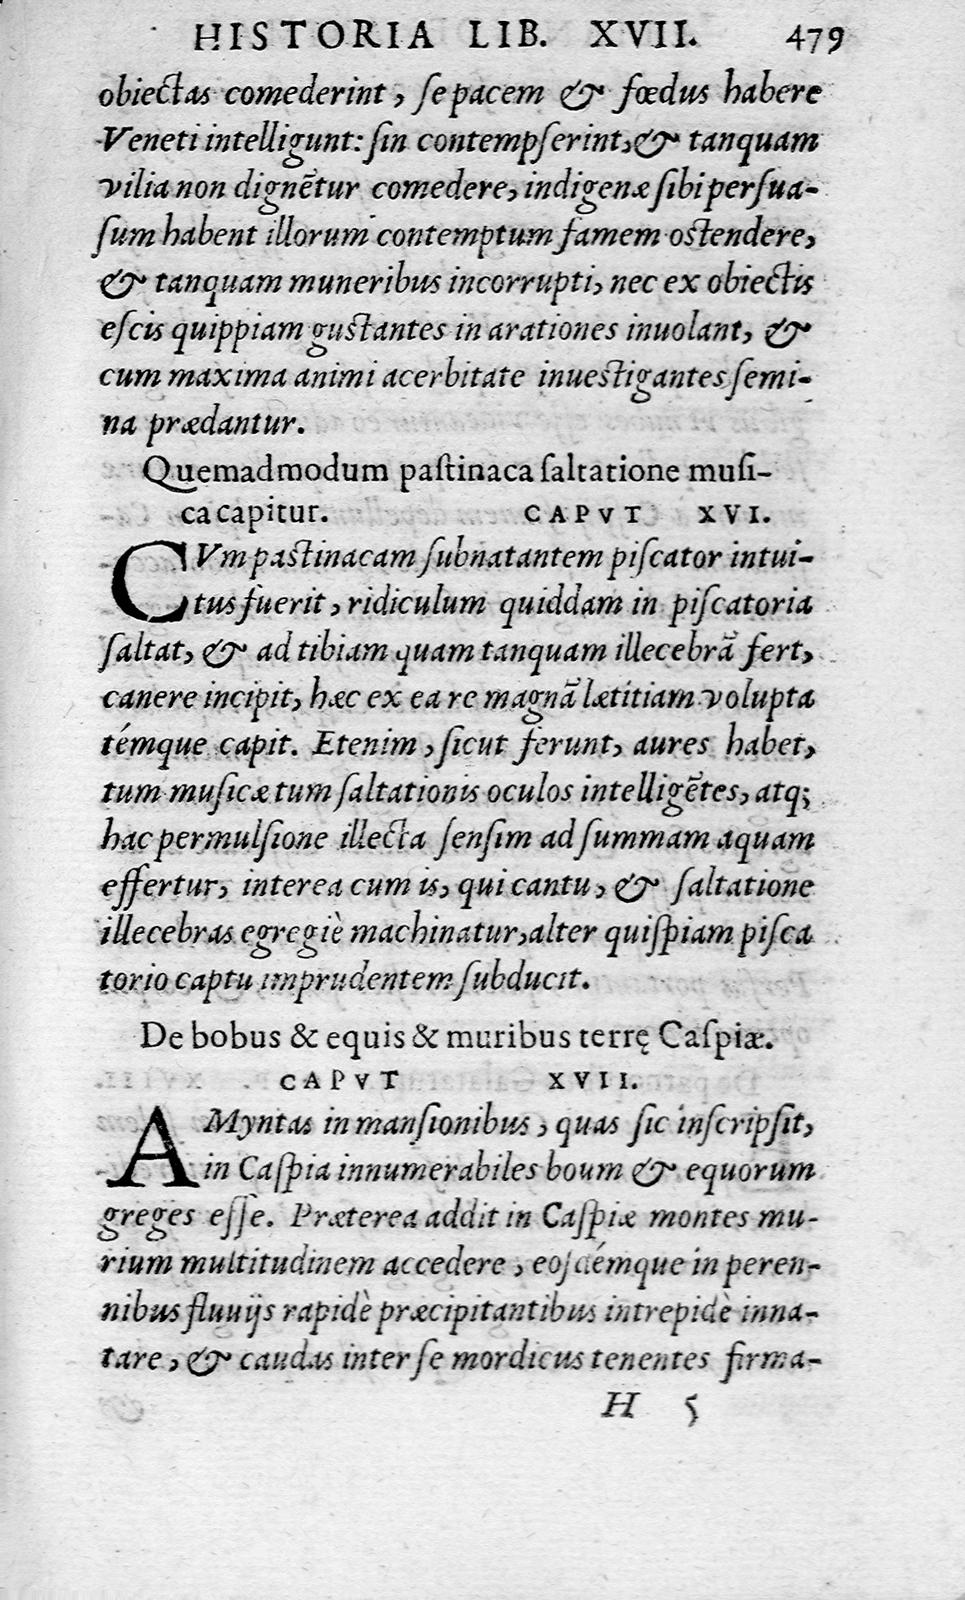 HISTORIA LIB. XVII. 479
obiectas comederint, ſe pacem & fœdus habere
Veneti intelligunt: ſin contempſerint, & tanquam
vilia non dignētur comedere, indigenæ ſibi perſua-
ſum habent illorum contemptum famem oſtendere,
& tanquam muneribus incorrupti, nec ex obiectis
eſcis quippiam guſtantes in arationes inuolant, &
cum maxima animi acerbitate inueſtigantes ſemi-
na prædantur.
Quemadmodum paſtinaca ſaltatione muſi-
ca capitur. CAPVT XVI.
CVm paſtinacam ſubnatantem piſcator intui-
tus fuerit, ridiculum quiddam in piſcatoria
ſaltat, & ad tibiam quam tanquam illecebrā fert,
canere incipit, hæc ex ea re magnā lætitiam volupta
témque capit. Etenim, ſicut ferunt, aures habet,
tum muſicæ tum ſaltationis oculos intelligētes, atq;
hac permulſione illecta ſenſim ad ſummam aquam
effertur, interea cum is, qui cantu, & ſaltatione
illecebras egregiè machinatur, alter quiſpiam piſca
torio captu imprudentem ſubducit.
De bobus & equis & muribus terrę Caſpiæ.
CAPVT XVII.
AMyntas in manſionibus, quas ſic inſcripſit,
in Caſpia innumerabiles boum & equorum
greges eſſe. Præterea addit in Caſpiæ montes mu-
rium multitudinem accedere, eoſdémque in peren-
nibus fluuijs rapidè præcipitantibus intrepidè inna-
tare, & caudas inter ſe mordicus tenentes firma-
H 5